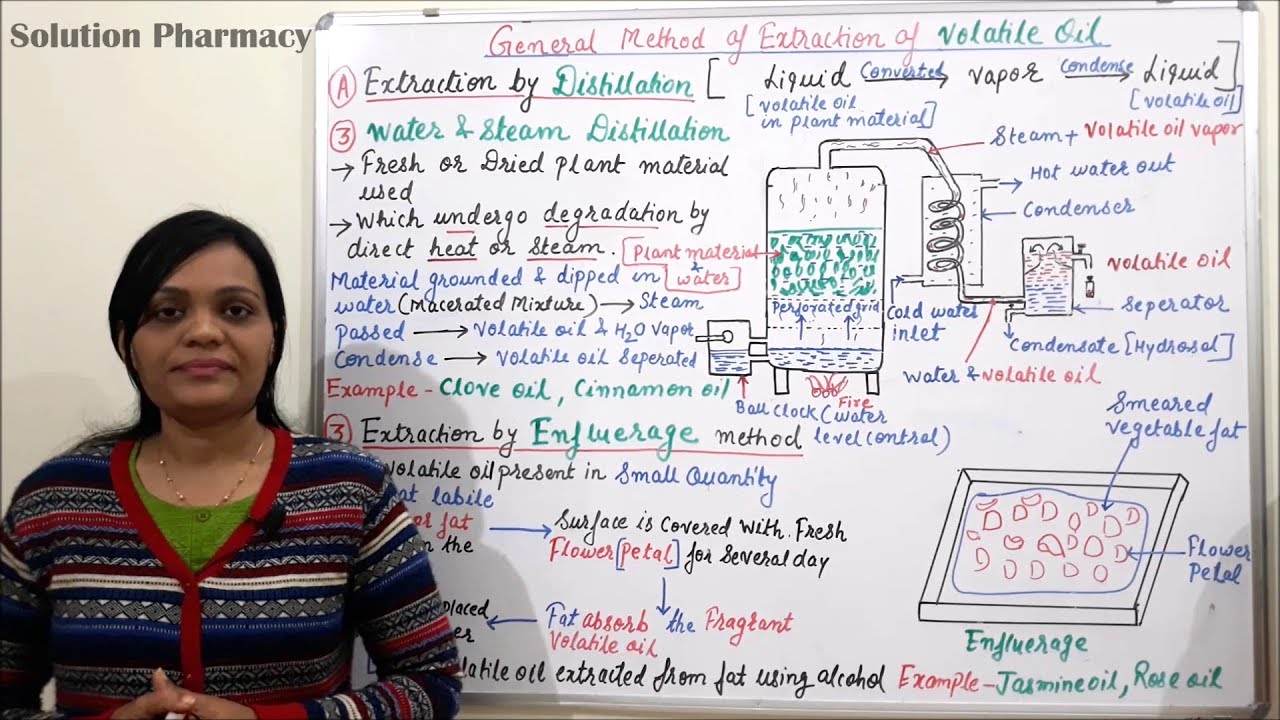 Solution Pharmacy
General Method of Extraction of Volatile Oil
A Extraction by Distillation [ Liquid Converted vapor Condense Liquid ]
[volatile oil in plant material]
[volatile oil]
3 Water & Steam Distillation
→ Fresh or Dried plant material
used
→ Which undergo degradation by
direct heat or steam.
Material grounded & dipped in water
water (Macerated Mixture) → Steam
passed → Volatile oil & H2O Vapor
Condense → Volatile oil Seperated
Example - Clove oil, Cinnamon oil
Steam + Volatile oil vapor
Hot water out
Condenser
Plant material
Perforated grid
Cold water
inlet
Volatile oil
Seperator
Condensate [Hydrosol]
Water & volatile oil
Fire
Ball Clock (water
level control)
3 Extraction by Enfluerage method
volatile oil present in Small Quantity
labile
fat → Surface is Covered with. Fresh
the Flower [petal] for Several day
placed ← Fat absorb the Fragrant
volatile oil
oil extracted from fat using alcohol Example - Jasmine oil, Rose oil
Smeared
vegetable fat
Flower
Petal
Enfluerage